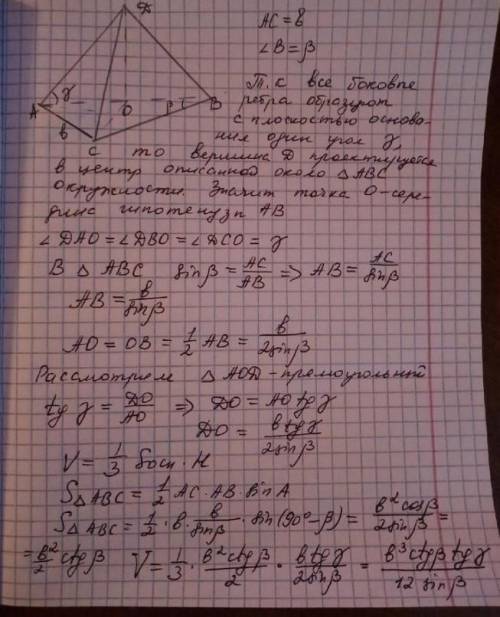 D
AC = b
∠B = β
Т.к все боковые
ребра образуют
с плоскостью основа-
ния один угол γ,
A γ O β B
b
C то вершина D проектируется
в центр описанной около △ABC
окружности. Значит точка O-сере-
дина гипотенузы AB
∠DAO = ∠DBO = ∠DCO = γ
В △ABC sin β = AC/AB ⇒ AB = AC/sin β
AB = b/sin β
AO = OB = 1/2 AB = b/2sin β
Рассмотрим △AOD - прямоугольный
tg γ = DO/AO ⇒ DO = AO tg γ
DO = b tg γ/2sin β
V = 1/3 Sосн · H
S△ABC = 1/2 AC · AB · sin A
S△ABC = 1/2 · b · b/sin β · sin(90°-β) = b² cos β/2sin β =
= b²/2 ctg β V = 1/3 · b² ctg β/2 · b tg γ/2sin β = b³ ctg β tg γ/12 sin β